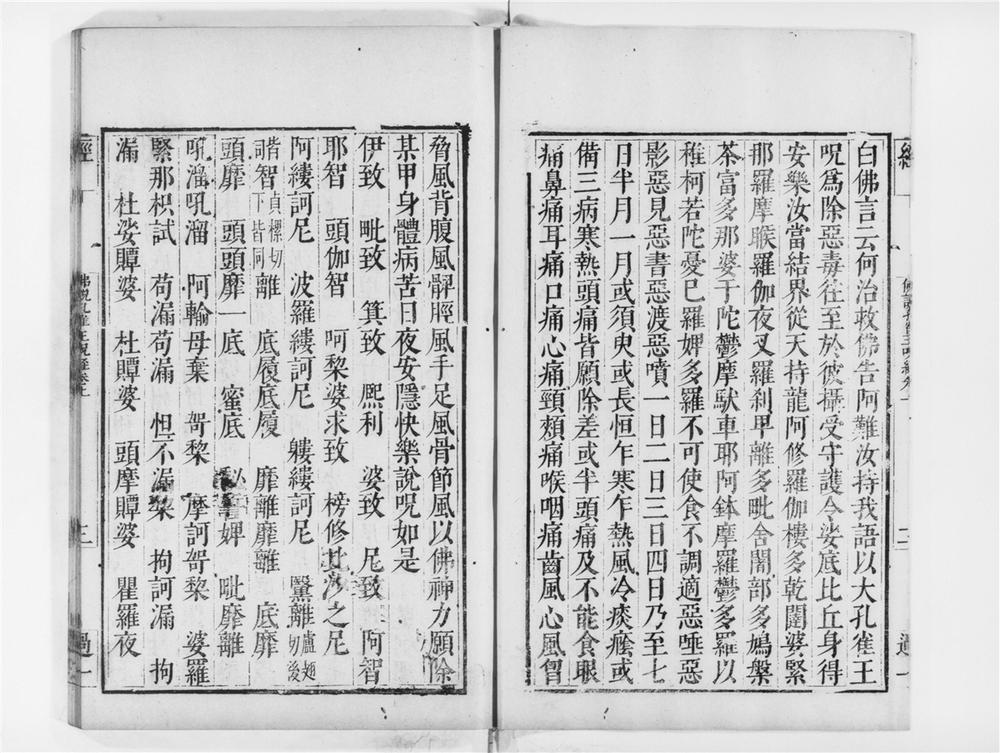 白佛言云何治救佛告阿難汝持我語以大孔雀王
呪為除惡毒往至於彼攝受守護令娑底比丘身得
安樂汝當結界從天持龍阿修羅伽樓多乾闥婆緊
那羅摩睺羅伽夜叉羅刹畢離多毗舍闍部多鳩槃
茶富多那婆于陀鬱摩馱車耶阿鉢摩羅鬱多羅以
稚柯若陀憂巳羅婢多羅不可使食不調適惡唾惡
影惡見惡書惡渡惡噴一日二日三日四日乃至七
日半月一月或須臾或長恒乍寒乍熱風冷痰癊或
備三病寒熱頭痛皆願除差或半頭痛及不能食眼
痛鼻痛耳痛口痛心痛頸頰痛喉咽痛齒風心風胷
脅風背腹風髀脛風手足風骨節風以佛神力願除
某甲身體病苦日夜安隱快樂說呪如是
伊致 毗致 箕致 熙利 婆致 尼致 阿智
耶智 頭伽智 呵黎婆求致 榜修 之尼
阿縷訶尼 波羅縷訶尼 耬縷訶尼 離
智 離 底履底履 靡離靡離 底靡
頭靡 頭頭靡一 底 蜜底 婢 毗靡離
吼溜吼溜 阿輪母棄 哿黎 摩訶哿黎 婆羅
緊那枳試 苟漏苟漏 怛不漏槃 拘訶漏 拘
漏 杜娑贉婆 杜贉婆 頭摩贉婆 瞿羅夜
經
三
過一